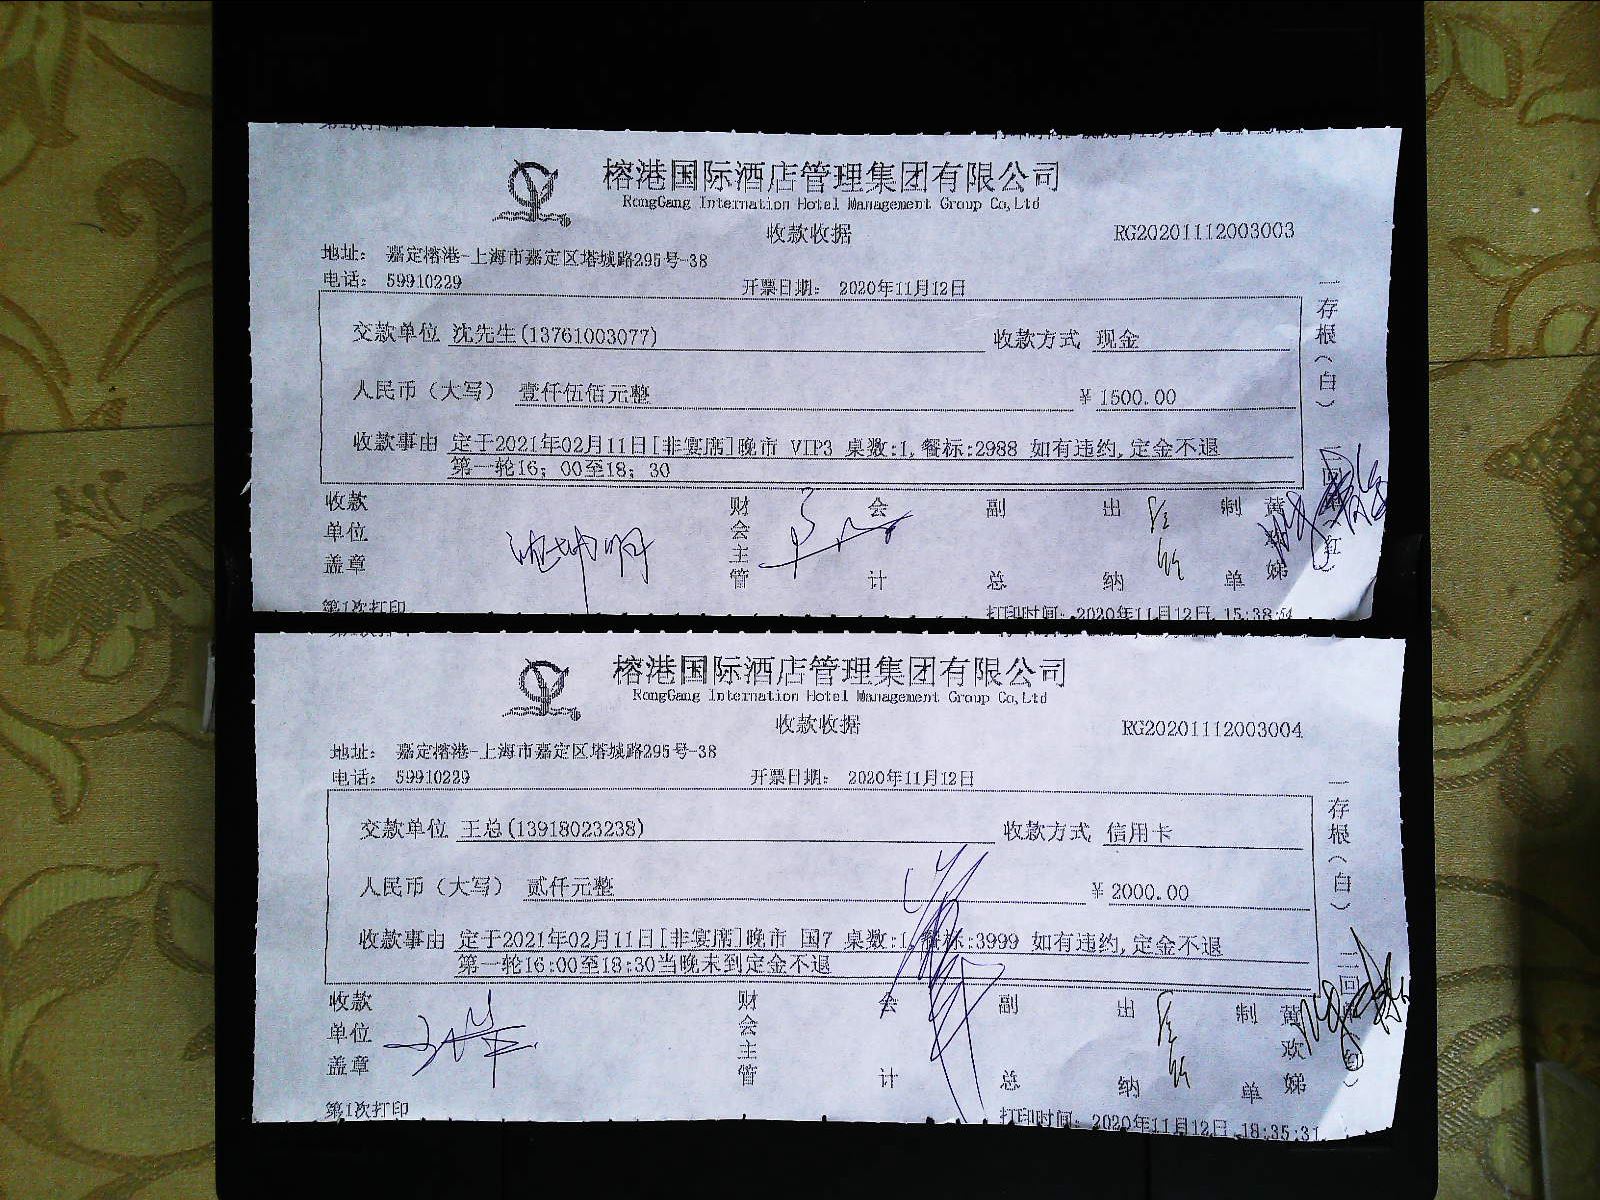 榕港国际酒店管理集团有限公司
RongGang Internation Hotel Management Group Co,Ltd
收款收据
RG20201112003003
地址： 嘉定榕港-上海市嘉定区塔城路295号-38
电话： 59910229
开票日期： 2020年11月12日
交款单位 沈先生(13761003077)
收款方式 现金
人民币（大写） 壹仟伍佰元整
￥ 1500.00
收款事由 定于2021年02月11日[非宴席]晚市 VIP3 桌数:1,餐标:2988 如有违约,定金不退
第一轮16；00至18；30
一存根（白）
收款单位盖章
财会主管
会计
副总
出纳
制单
第1次打印
打印时间：2020年11月12日 15:38:54
榕港国际酒店管理集团有限公司
RongGang Internation Hotel Management Group Co,Ltd
收款收据
RG20201112003004
地址： 嘉定榕港-上海市嘉定区塔城路295号-38
电话： 59910229
开票日期： 2020年11月12日
交款单位 王总(13918023238)
收款方式 信用卡
人民币（大写） 贰仟元整
￥ 2000.00
收款事由 定于2021年02月11日[非宴席]晚市 国7 桌数:1,餐标:3999 如有违约,定金不退
第一轮16:00至18:30当晚未到定金不退
一存根（白）
收款单位盖章
财会主管
会计
副总
出纳
制单
黄欢娣
第1次打印
打印时间：2020年11月12日 18:35:31